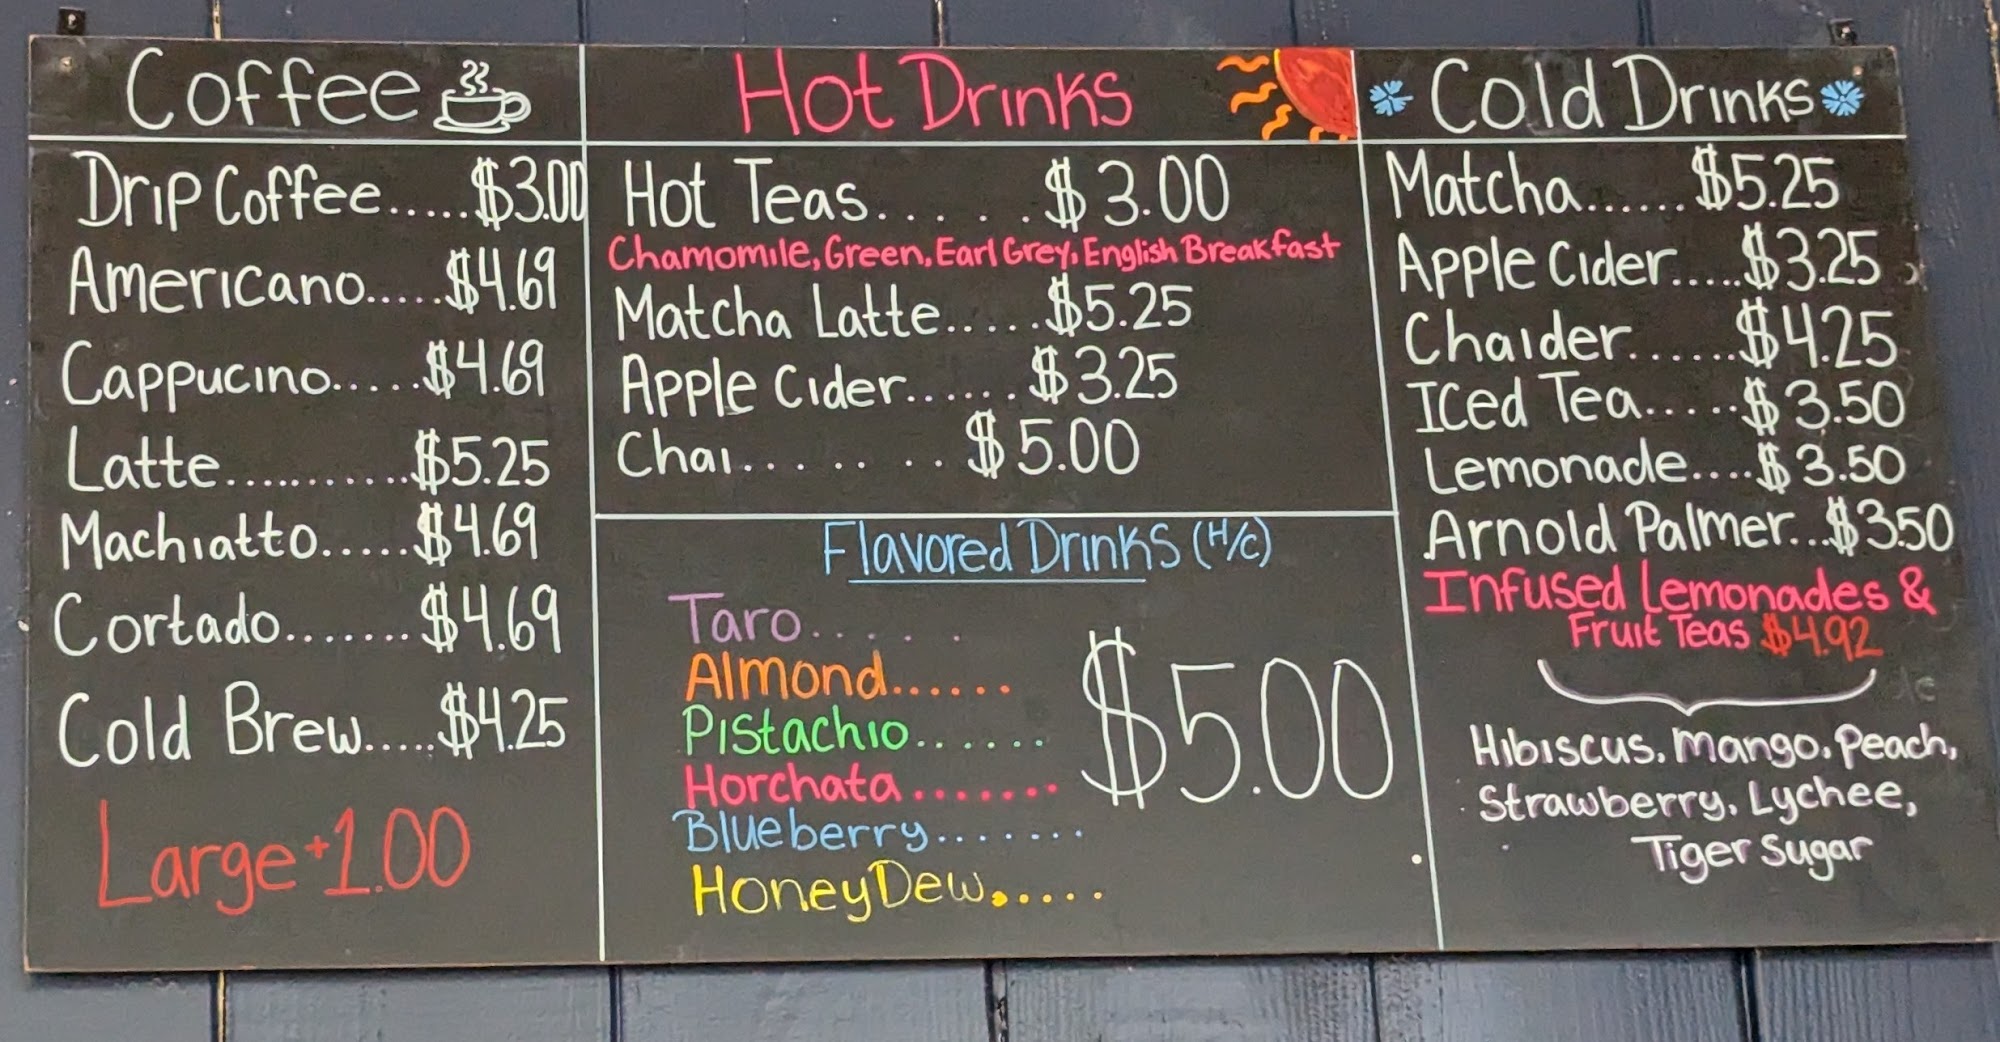 Coffee
Drip Coffee.....$3.00
Americano.....$4.69
Cappucino.....$4.69
Latte...........$5.25
Machiatto.....$4.69
Cortado.......$4.69
Cold Brew.....$4.25
Large+1.00
Hot Drinks
Hot Teas. . . . . .$3.00
Chamomile, Green, Earl Grey, English Breakfast
Matcha Latte.....$5.25
Apple Cider......$3.25
Chai. . . . . . . .$5.00
Flavored Drinks (H/C)
Taro. . . . . .
Almond......
Pistachio......
Horchata.......
Blueberry.......
HoneyDew......
$5.00
Cold Drinks
Matcha......$5.25
Apple Cider.....$3.25
Chaider......$4.25
Iced Tea.....$3.50
Lemonade....$3.50
Arnold Palmer...$3.50
Infused Lemonades &
Fruit Teas $4.92
Hibiscus, Mango, Peach,
Strawberry, Lychee,
Tiger Sugar